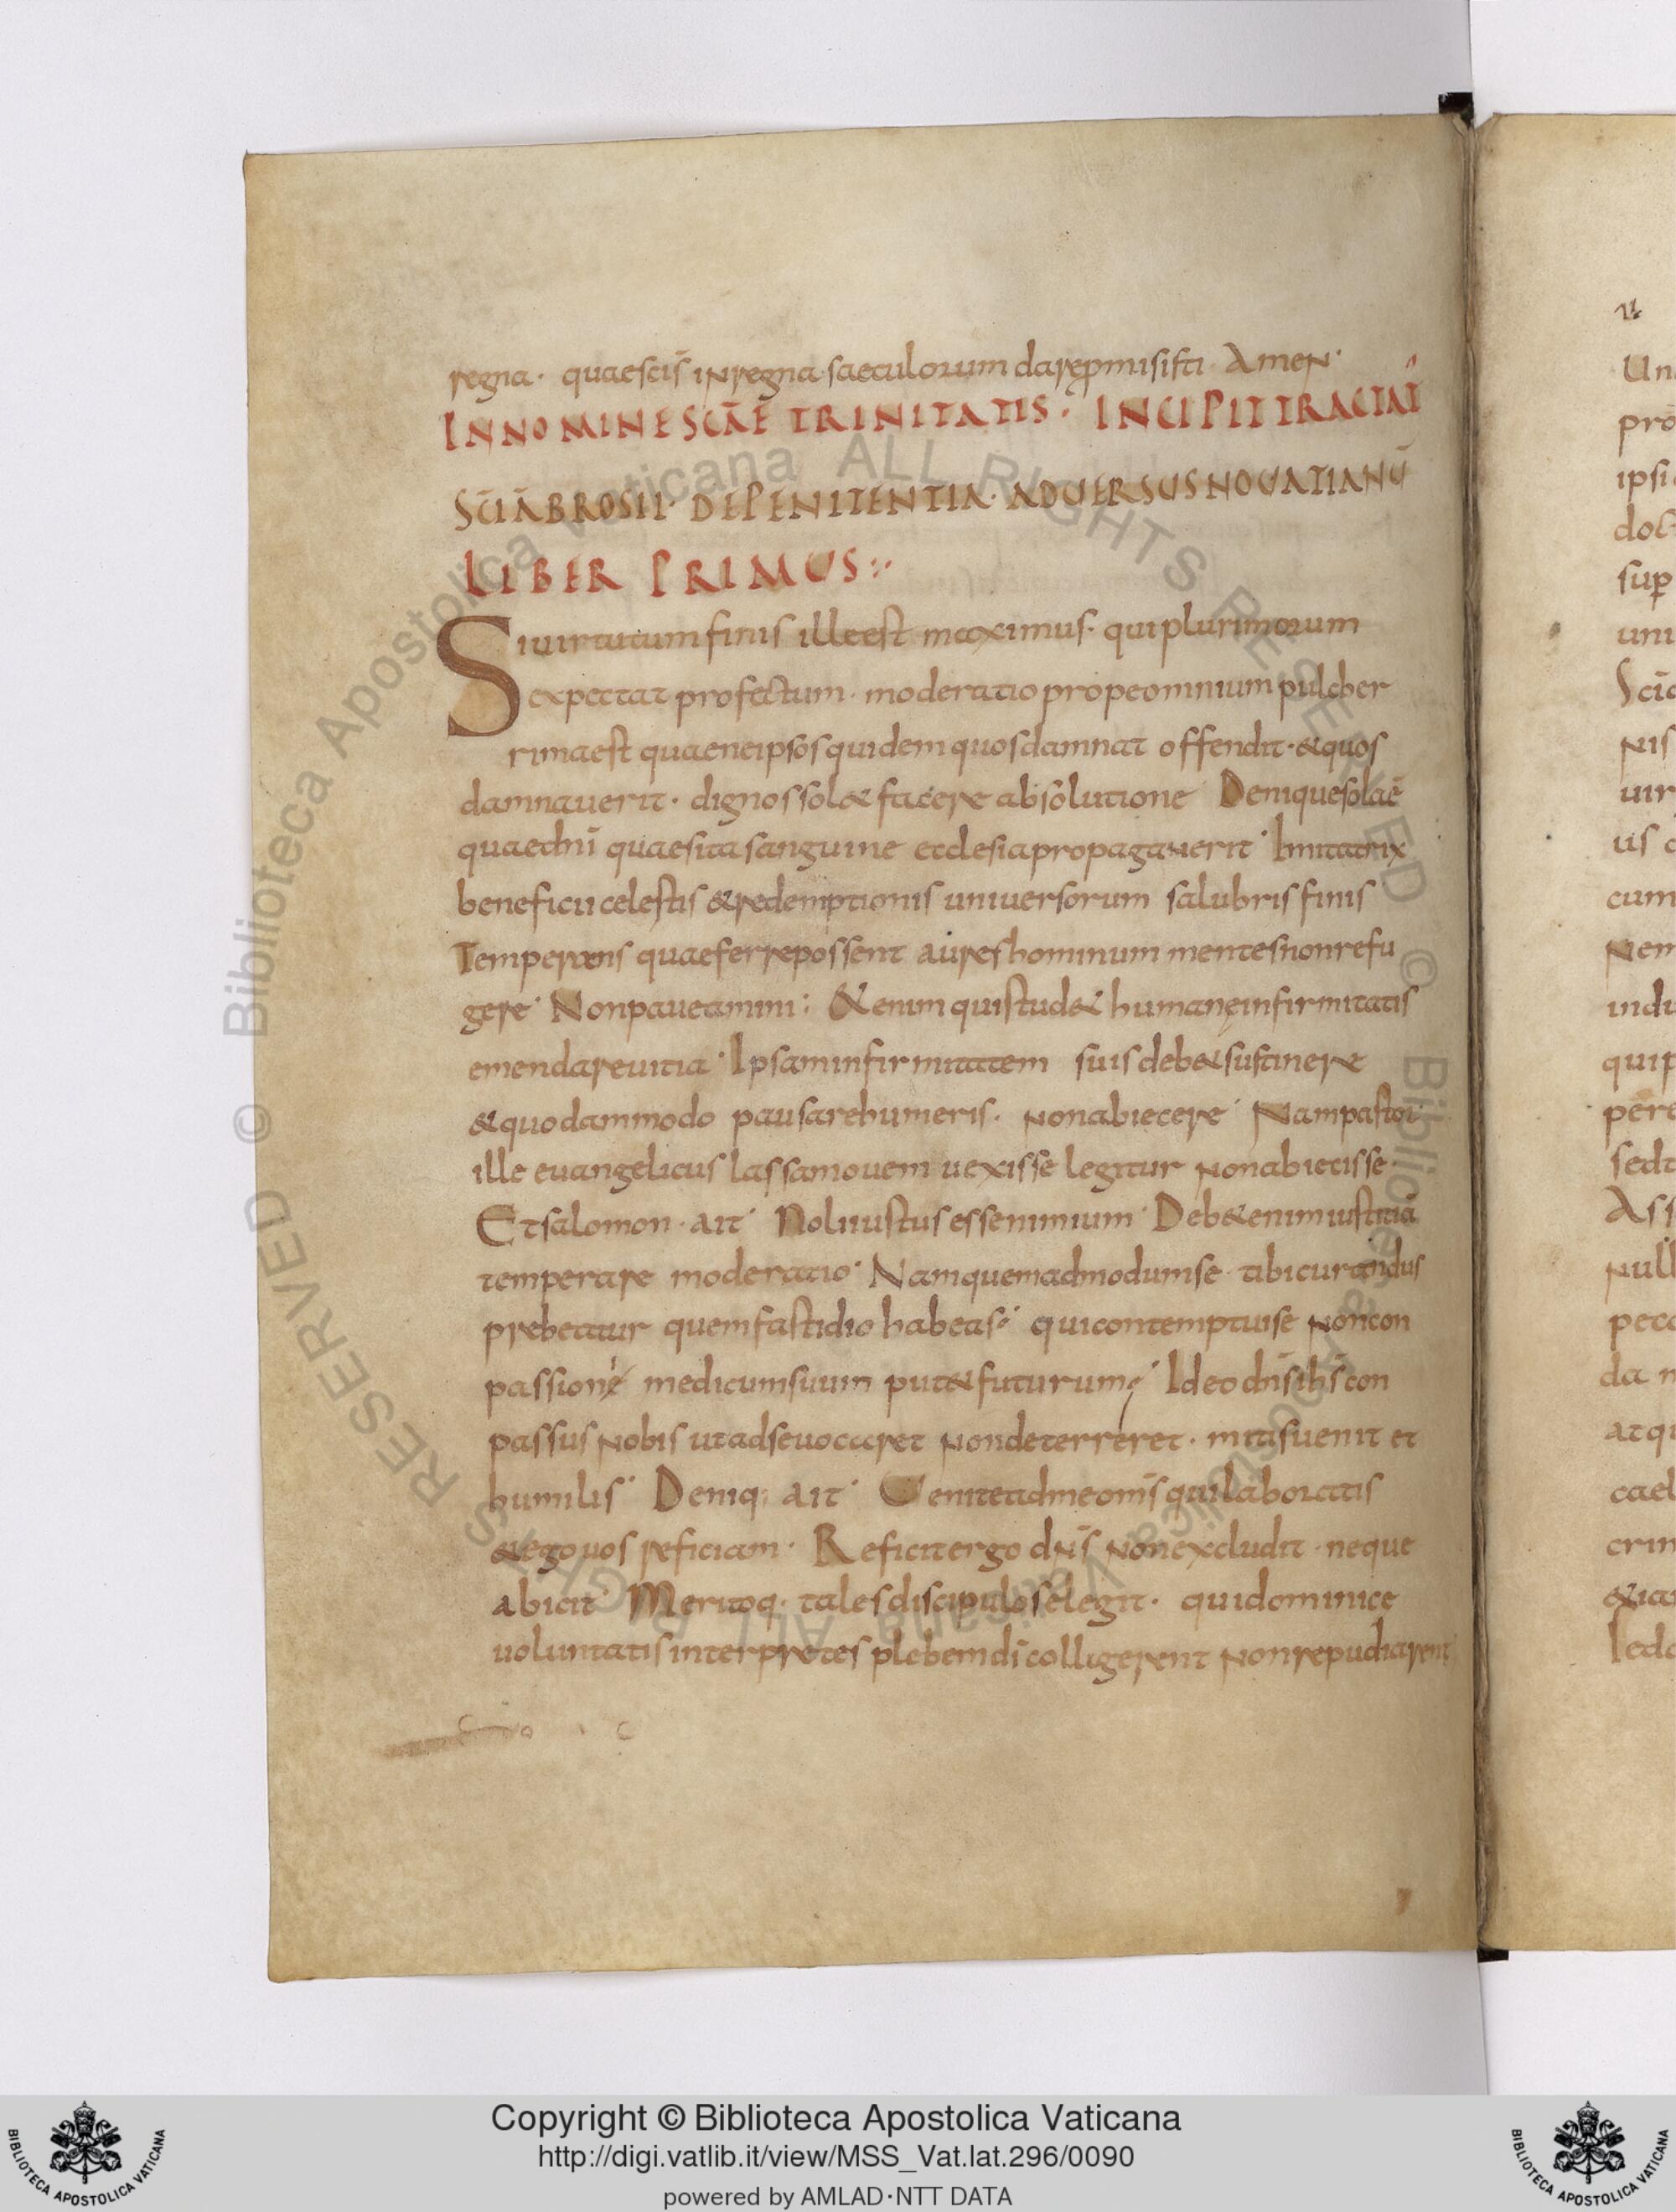 regna· quae sc̄is in regna saeculorum dare p̱misisti· Amen·
IN NOMINE SC̄AE TRINITATIS· INCIPIT TRACTAT̄
SC̄I ĀBROSII· DE PENITENTIA· ADUERSUS NOUATIANŪ
LIBER PRIMUS:·
Si uirtutum finis ille est maximus· qui plurimorum
expectat profectum· moderatio prope omnium pulcher
rima est quae ne ipsos quidem quos damnat offendit· & quos
damnauerit· dignos sol& facere absolutione Denique sola ē
quae chr̄i quaesita sanguine ecclesia propagauerit· Imitatrix
beneficii celestis & redemptionis uniuersorum salubris finis
Temperans quae ferre possent aures hominum mentes non refu
gere· Non paueamini; & enim qui stud& humanę infirmitatis
emendare uitia· Ipsam infirmitatem suis deb& sustinere
& quodammodo pausare humeris· non abiecere· Nam pastor
ille euangelicus lassam ouem uexisse legitur non abiecisse·
Et salomon· ait· Noli iustus esse nimium· Deb& enim iustitiā
temperare moderatio· Nam quemadmodum se tibi curandus
prebeatur quem fastidio habeas· qui contemptui se non con
passione medicum suum put& futurum· Ideo dn̄s ih̄s con
passus nobis ut ad se uocaret non deterreret· mitis uenit et
humilis· Deniq; ait· Uenite ad me om̄s qui laboratis
& ego uos reficiam· Reficit ergo dn̄s non excludit· neque
abicit· Meritoq· tales discipulos elegit· qui dominice
uoluntatis interpretes plebem dī colligerent non repudiarent
u
Un
pro
ipsi
sup
uni
Scīa
nis
uir
us
cum
nem
indu
quip
pere
sed
Ass
null
pecc
da
at q
cael
crim
& ia
© Biblioteca Apostolica Vaticana ALL RIGHTS RESERVED © Biblioteca Apostolica Vaticana ALL RIGHTS RESERVED
BIBLIOTECA APOSTOLICA VATICANA
Copyright © Biblioteca Apostolica Vaticana
http://digi.vatlib.it/view/MSS_Vat.lat.296/0090
powered by AMLAD·NTT DATA
BIBLIOTECA APOSTOLICA VATICANA